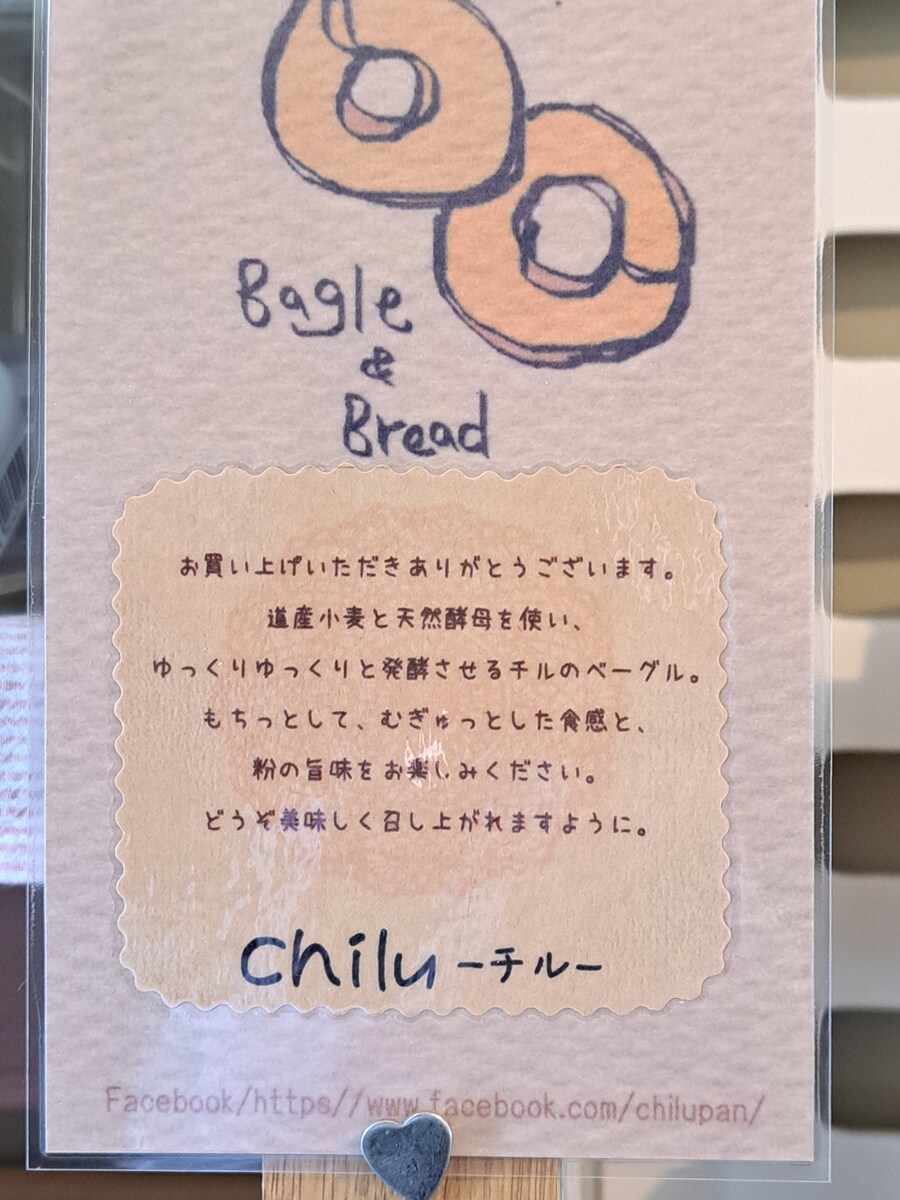 Bagle
&
Bread
お買い上げいただきありがとうございます。
道産小麦と天然酵母を使い、
ゆっくりゆっくりと発酵させるチルのベーグル。
もちっとして、むぎゅっとした食感と、
粉の旨味をお楽しみください。
どうぞ美味しく召し上がれますように。
Chilu ーチルー
Facebook/https//www.facebook.com/chilupan/